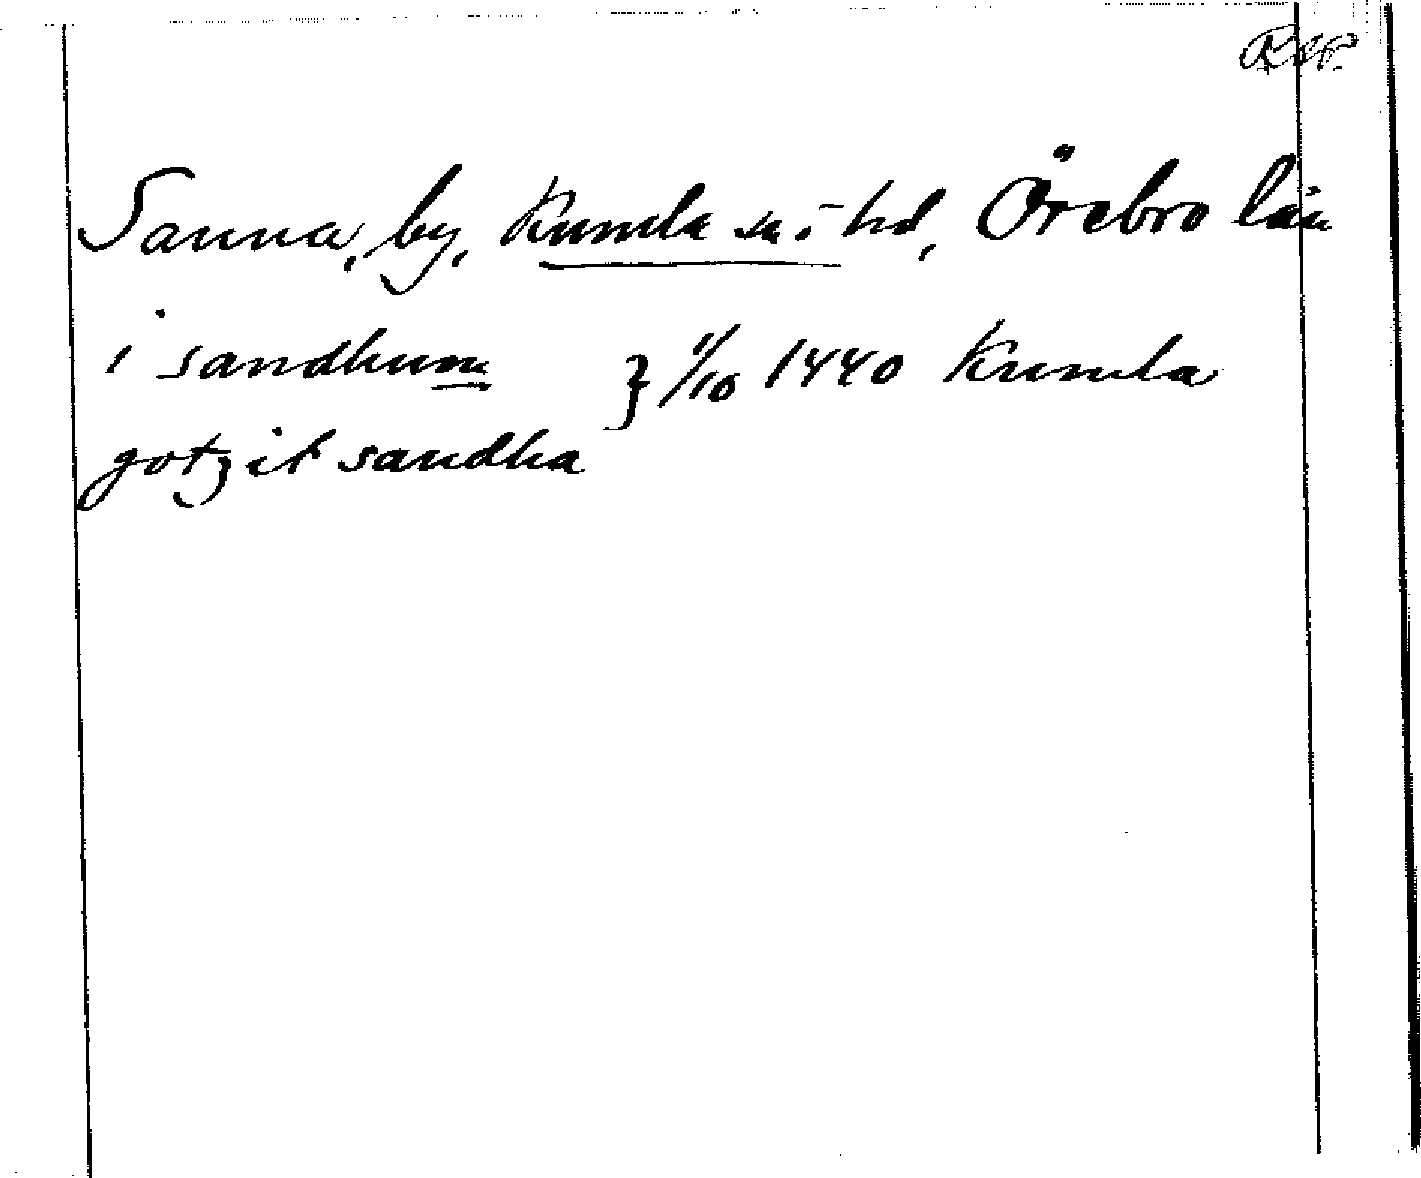 Sanna, by, Kumla sn. o. hd, Örebro län
i sandhum } 11/10 1440 Kumla
gotzit sandha